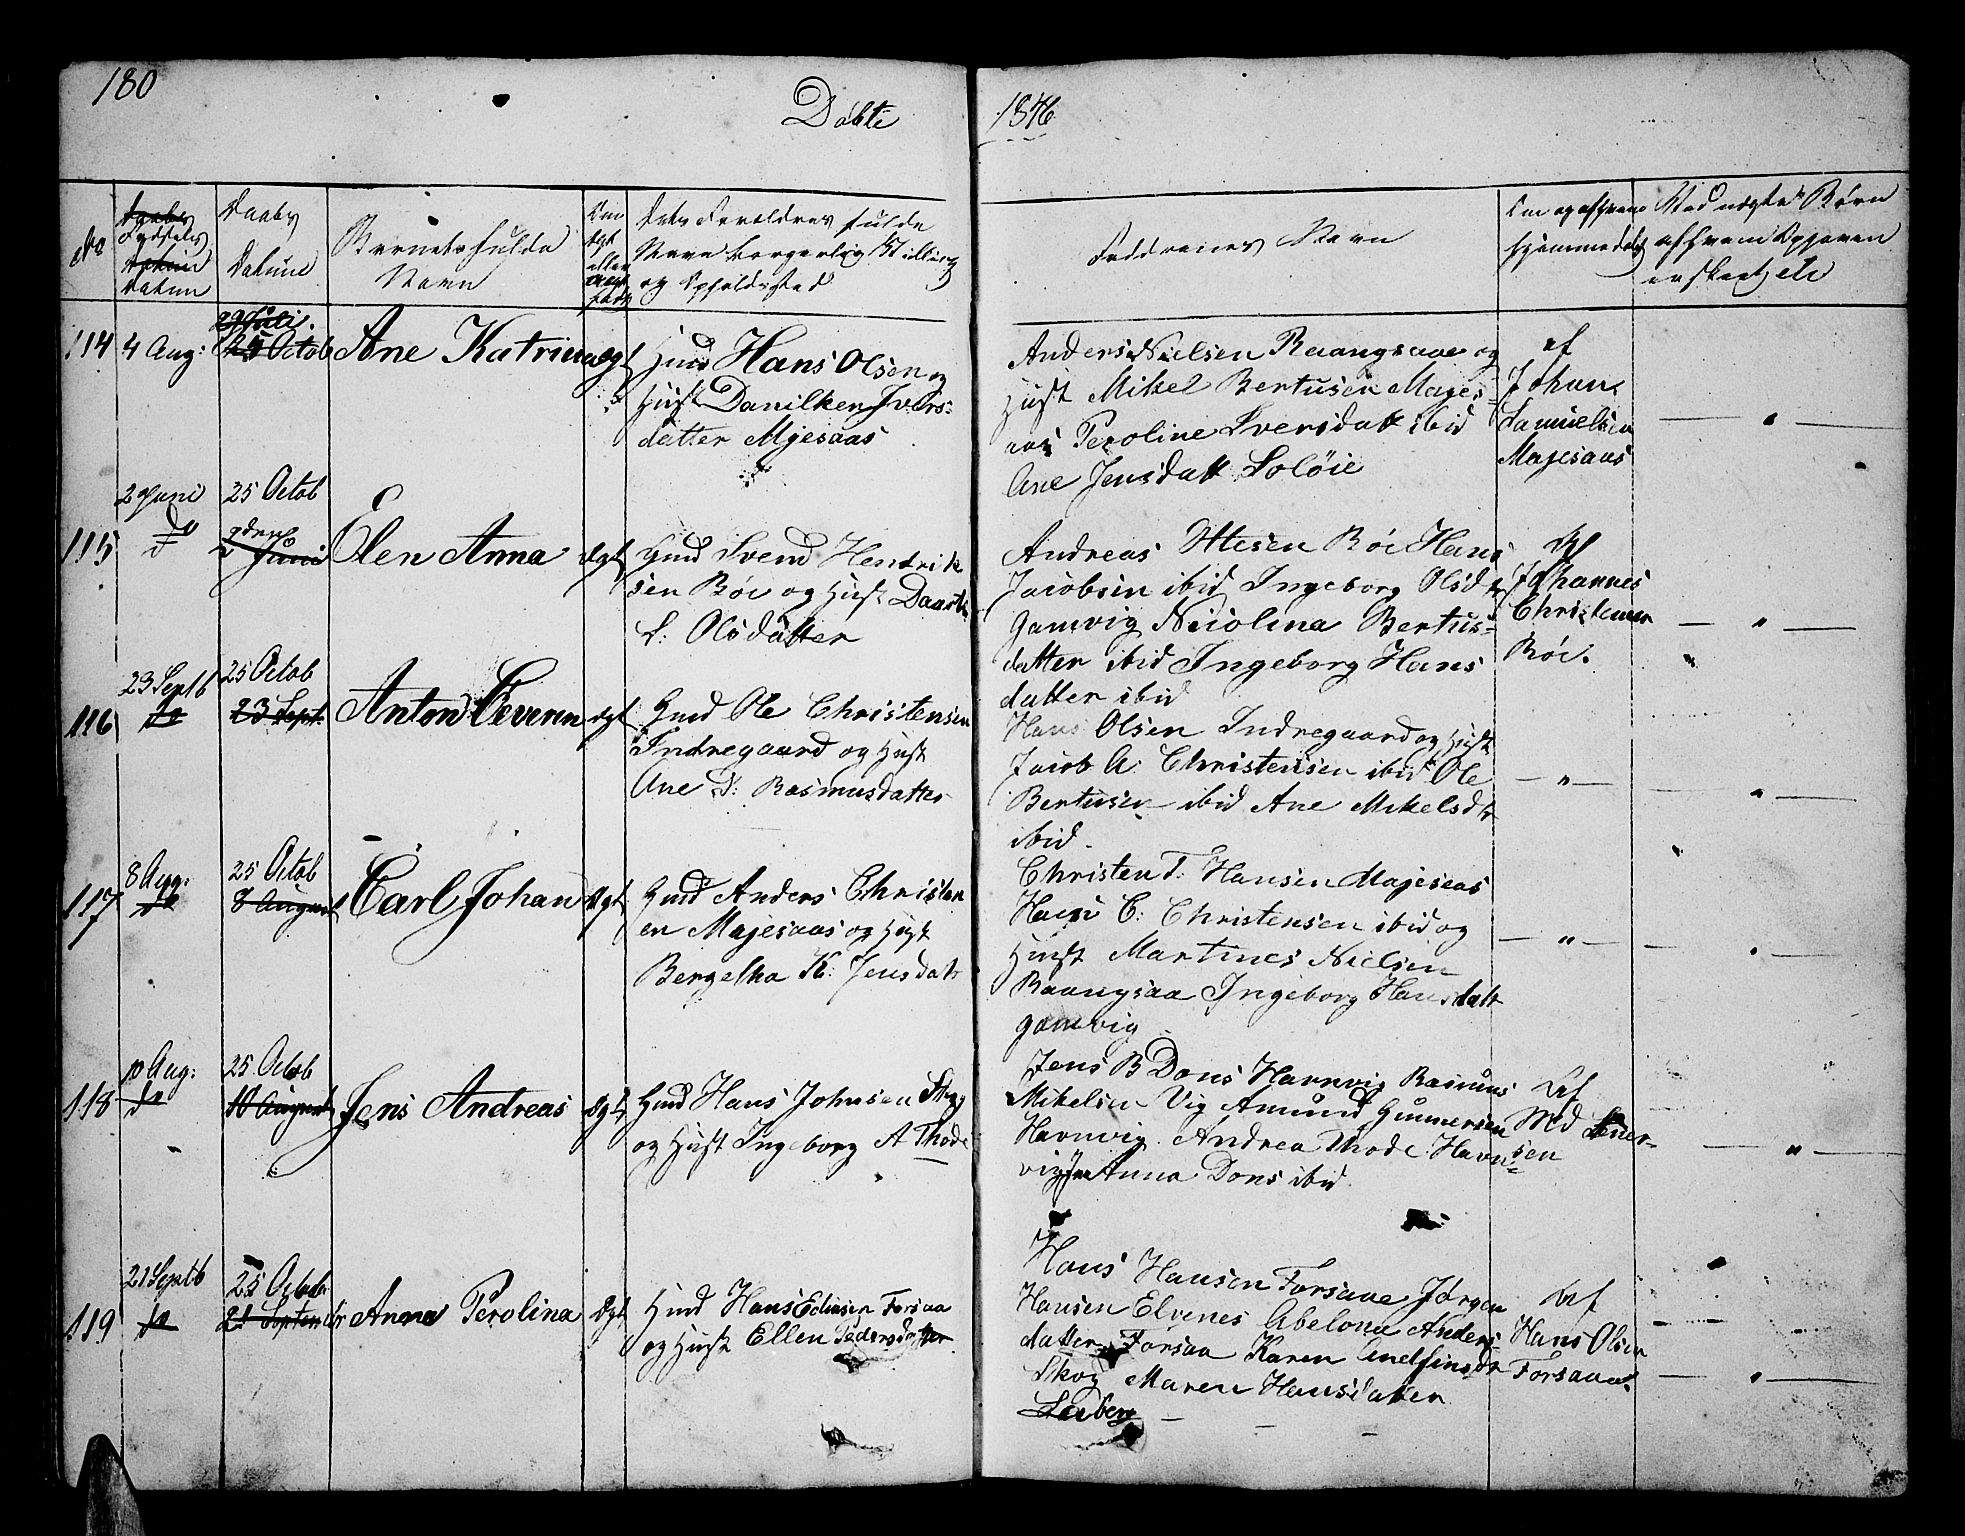 180
Döbte
1846
No
Fødsels
Datum
Daabs
Datum
Barnets fulde
Navn
Om
ægt
eller
uægt
født
Dets Forældres fulde
Navn borgerlig Stilling
og Opholdssted
Faddernes Navn
Om og af hvem
hjemmedøbt
Ved uægte Børn
af hvem Opgaven
er skeet, etc
114
4 Aug:
29 Juli.
25 Octob
Ane Katrina
ægt
Hmd Hans Olsen og
Hust Danilken Ivers-
datter Majesaas
Anders Nielsen Raangsaae og
Hust Mikel Bertusen Majes-
aas Peroline Iversdatt ibid
Ane Jensdatt Soløie
af
Johan
Samuelsen
Majesaas
— " —
115
2 Juni
do
25 Octob
2 Juni
Elen Anna
ægt
Hmd Svend Hendrik
sen Röi og Hust Daart
L: Olsdatter
Andreas Ottesen Röi Hans
Jacobsen ibid Ingeborg Olsdtr
Gamvig Nicolina Bertus-
datter ibid Ingeborg Hans
datter ibid
Af
Johannes
Christensen
Röi.
— " —
116
23 Septb
do
25 Octob
23 Sept.
Anton Severin
ægt
Hmd Ole Christensen
Indregaard og Hust
Ane D: Rasmusdatter
Hans Olsen Indregaard og Hust
Jacob A: Christensen ibid Ole
Bertusen ibid Ane Mikelsdtr
ibid.
— " —
— " —
117
8 Aug:
do
25 Octob
8 August
Carl Johan
ægt
Hmd Anders Christen
en Majesaas og Hust
Bergetha K: Jensdatr
Christen T: Hansen Majesaas
Hans C: Christensen ibid og
Hust Martines Nielsen
Raangsaa Ingeborg Hansdatr
Gamvig
— " —
— " —
118
10 Aug:
do
25 Octob
10 August
Jens Andreas
ægt
Hmd Hans Johnsen Skog
og Hust Ingeborg A Thode
Jens B Dons Havnvig Rasmus
Mikelsen Vig Amund Gunnersen
Havnvig Andrea Thode Havn-
vig Anna Dons ibid
Af
— " —
119
21 Septb
do
25 Octob
21 Septembr
Anna Perolina
ægt
Hmd Hans Ediasen Forsaa
og Hust Ellen Pedersdatter
Hans Hansen Forsaae Jørgen
Hansen Elvenes Abelona Anders-
datter Forsaa Karen Andfinsdtr
Skog Maren Hansdatter
Af
Hans Olsen
Forsaae.
— " —